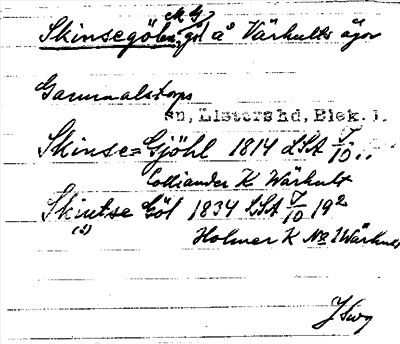 Skinsegölen, göl å Värhults ägor
Gammalstorps
sn, Listers hd, Blek. l.
Skinse=Gjöhl 1814 LSA J/10
Colliander K Wärhult
Skintse Göl 1834 LSA J/10 19²
(?)
Holmer K No 1 Wärhult